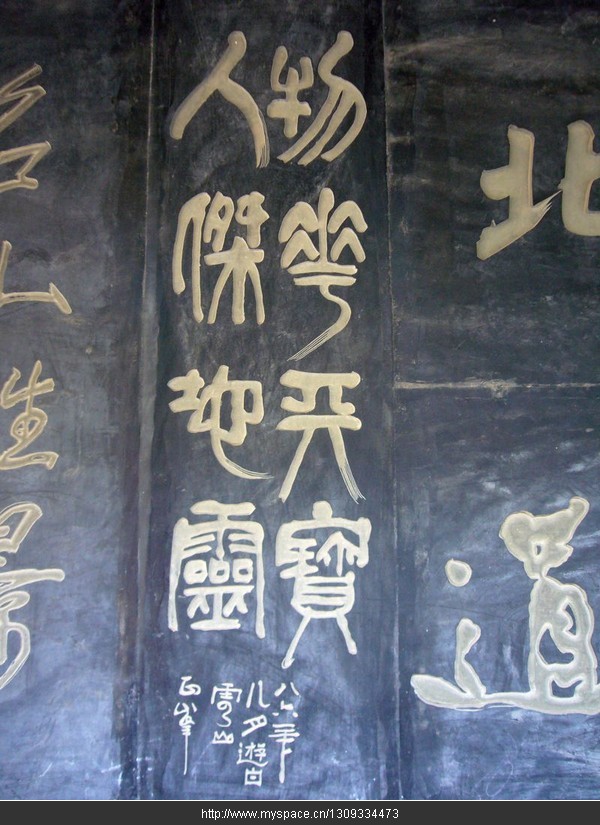 北道
物華天寶
人傑地靈
八六年
月遊白
雲山
正峯
山
景
http://www.myspace.cn/1309334473